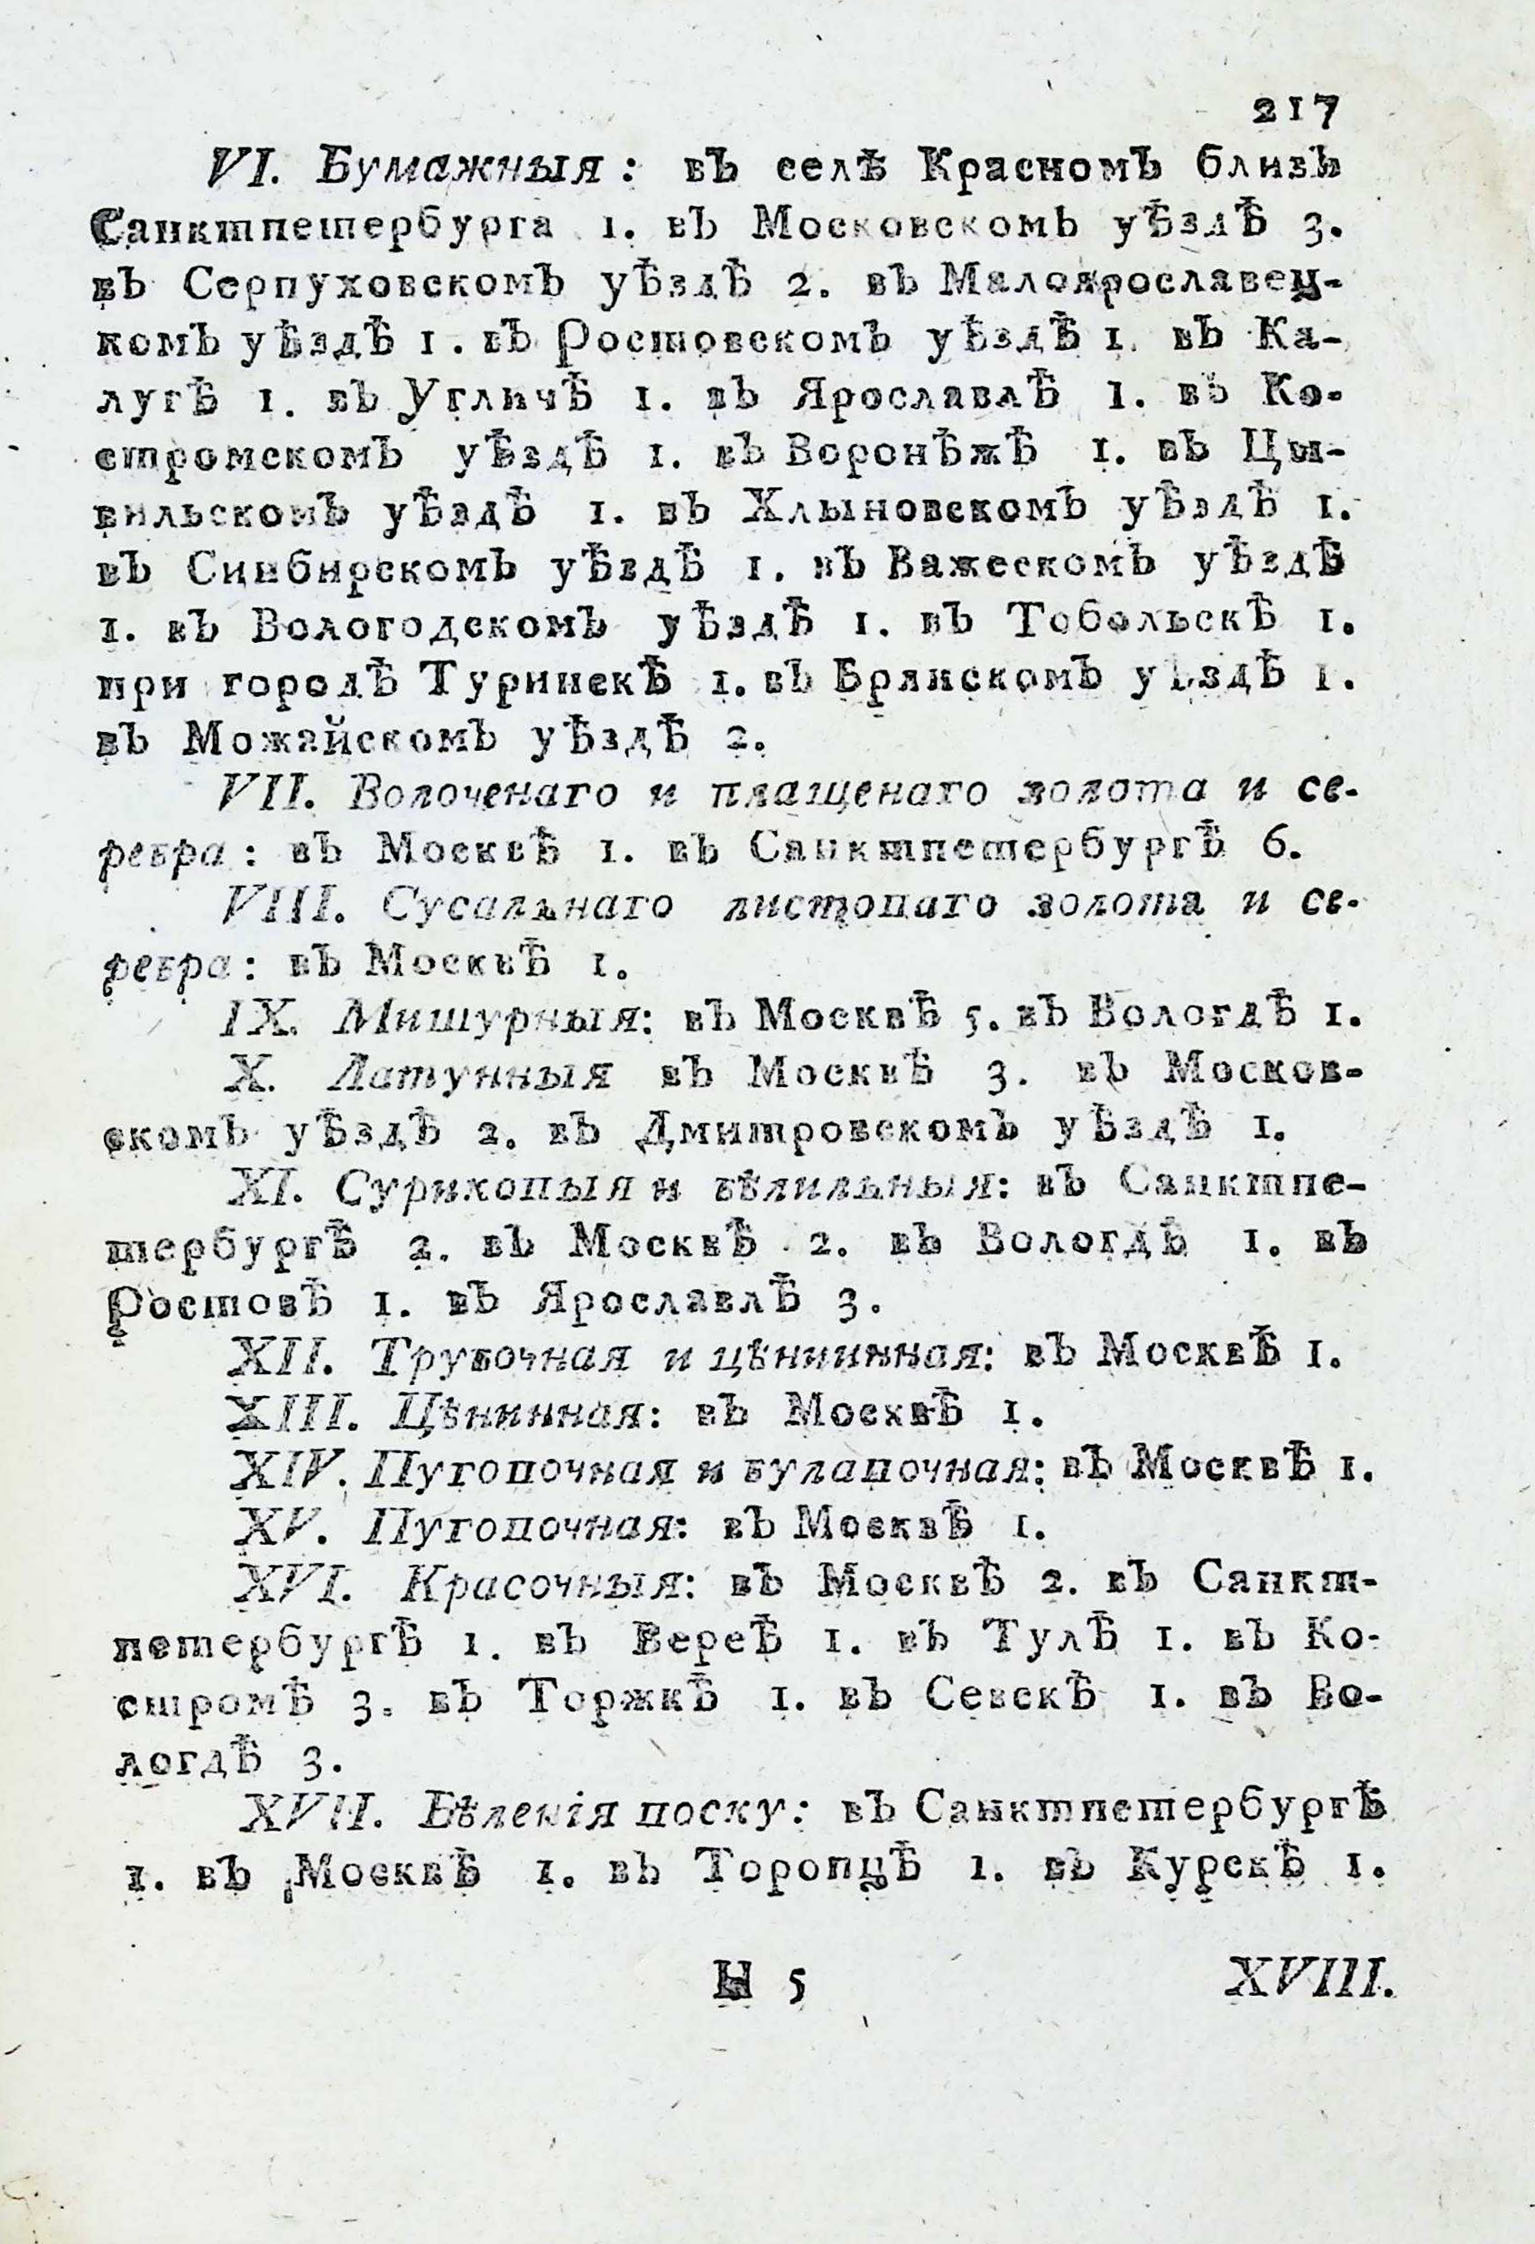 217
VI. Бумажныя: въ селѣ Красномъ близь
Санктпетербурга 1. въ Московскомъ уѣздѣ 3.
въ Серпуховскомъ уѣздѣ 2. въ Малоярославец-
комъ уѣздѣ 1. въ Ростовскомъ уѣздѣ 1. въ Ка-
лугѣ 1. въ Угличѣ 1. въ Ярославлѣ 1. въ Ко-
стромскомъ уѣздѣ 1. въ Воронѣжѣ 1. въ Цы-
вильскомъ уѣздѣ 1. въ Хлыновскомъ уѣздѣ 1.
въ Синбирскомъ уѣздѣ 1. въ Важескомъ уѣздѣ
1. въ Вологодскомъ уѣздѣ 1. въ Тобольскѣ 1.
при городѣ Туринскѣ 1. въ Брянскомъ уѣздѣ 1.
въ Можайскомъ уѣздѣ 2.
VII. Волоченаго и плащенаго золота и се-
ребра: въ Москвѣ 1. въ Санктпетербургѣ 6.
VIII. Сусальнаго листоваго золота и се-
ребра: въ Москвѣ 1.
IX. Мишурныя: въ Москвѣ 5. въ Вологдѣ 1.
X. Латунныя въ Москвѣ 3. въ Москов-
скомъ уѣздѣ 2. въ Дмитровскомъ уѣздѣ 1.
XI. Суриковыя и бѣлильныя: въ Санктпе-
тербургѣ 2. въ Москвѣ 2. въ Вологдѣ 1. въ
Ростовѣ 1. въ Ярославлѣ 3.
XII. Трубочная и цѣнинная: въ Москвѣ 1.
XIII. Цѣнинная: въ Москвѣ 1.
XIV. Пуговочная и булавочная: въ Москвѣ 1.
XV. Пуговочная: въ Москвѣ 1.
XVI. Красочныя: въ Москвѣ 2. въ Санкт-
петербургѣ 1. въ Вереѣ 1. въ Тулѣ 1. въ Ко-
стромѣ 3. въ Торжкѣ 1. въ Севскѣ 1. въ Во-
логдѣ 3.
XVII. Бѣленія воску: въ Санктпетербургѣ
1. въ Москвѣ 1. въ Торопцѣ 1. въ Курскѣ 1.
Н 5 XVIII.